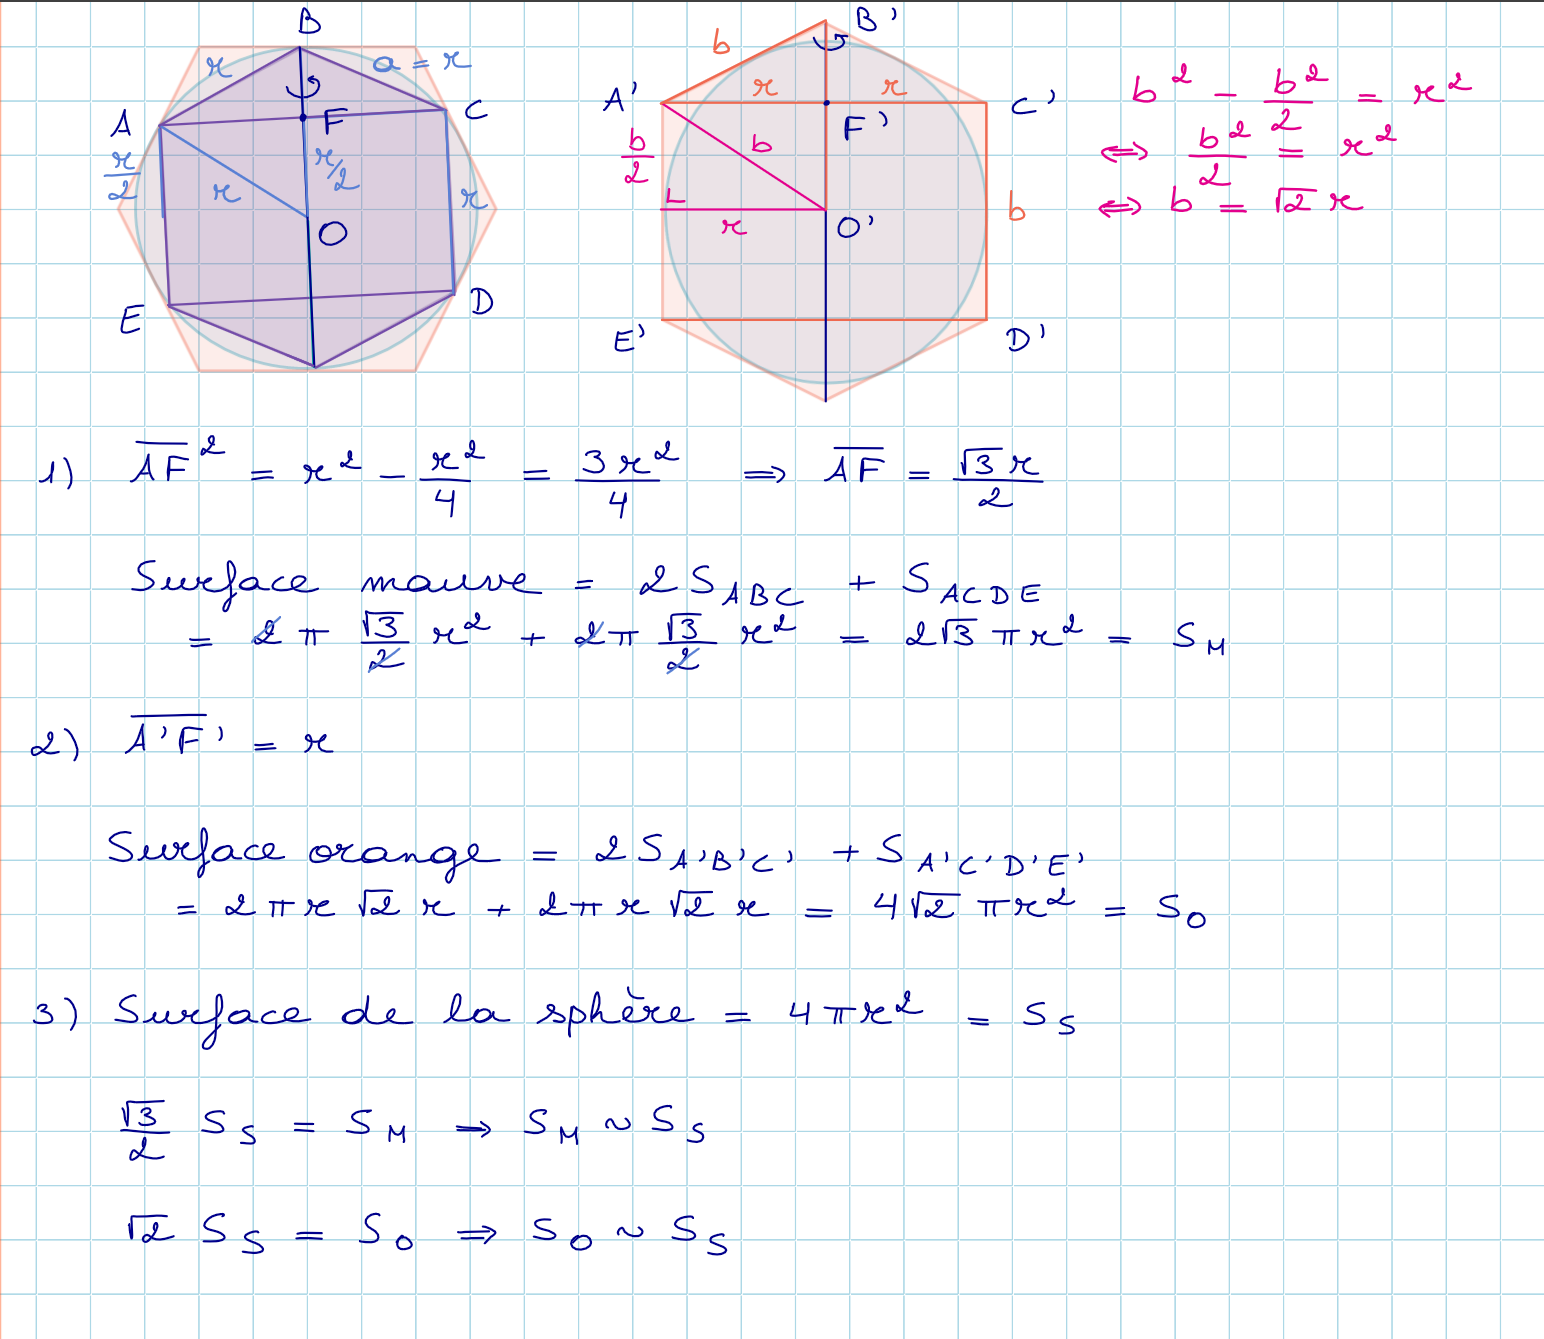 B
r
a = r
A
F
C
r/2
r/2
r
r
O
E
D
B'
b
A'
r
r
C'
F'
b/2
b
r
O'
b
E'
D'
b² - b²/2 = r²
⇔ b²/2 = r²
⇔ b = √2 r
1) AF² = r² - r²/4 = 3r²/4 ⇒ AF = √3 r/2
Surface mauve = 2 S_ABC + S_ACDE
= 2 π √3/2 r² + 2π √3/2 r² = 2√3 πr² = S_M
2) A'F' = r
Surface orange = 2 S_A'B'C' + S_A'C'D'E'
= 2 π r √2 r + 2π r √2 r = 4√2 πr² = S_O
3) Surface de la sphère = 4πr² = S_S
√3/2 S_S = S_M ⇒ S_M ~ S_S
√2 S_S = S_O ⇒ S_O ~ S_S